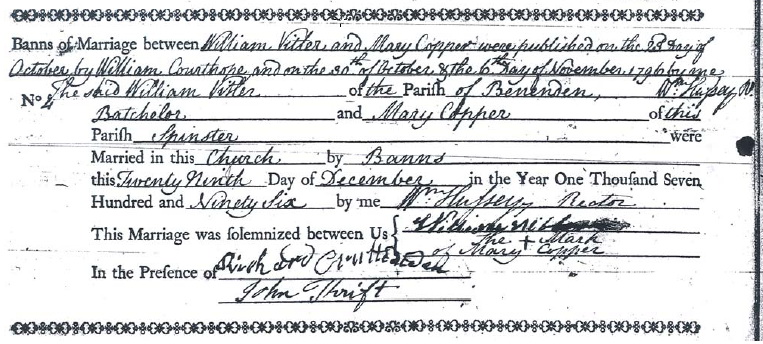 Banns of Marriage between William Vitler and Mary Copper were published on the 23 day of
October by William Courthope, and on the 30th of October & the 6th Day of November 1796 by me,
The said William Vitler of the Parish of Benenden, Wm Hussey R
No 4 Batchelor and Mary Copper of this
Parish Spinster were
Married in this Church by Banns
this Twenty Ninth Day of December in the Year One Thousand Seven
Hundred and Ninety Six by me Wm Hussey Rector
This Marriage was solemnized between Us { William
The + Mark
of Mary Copper
In the Presence of Richard
John Thrift